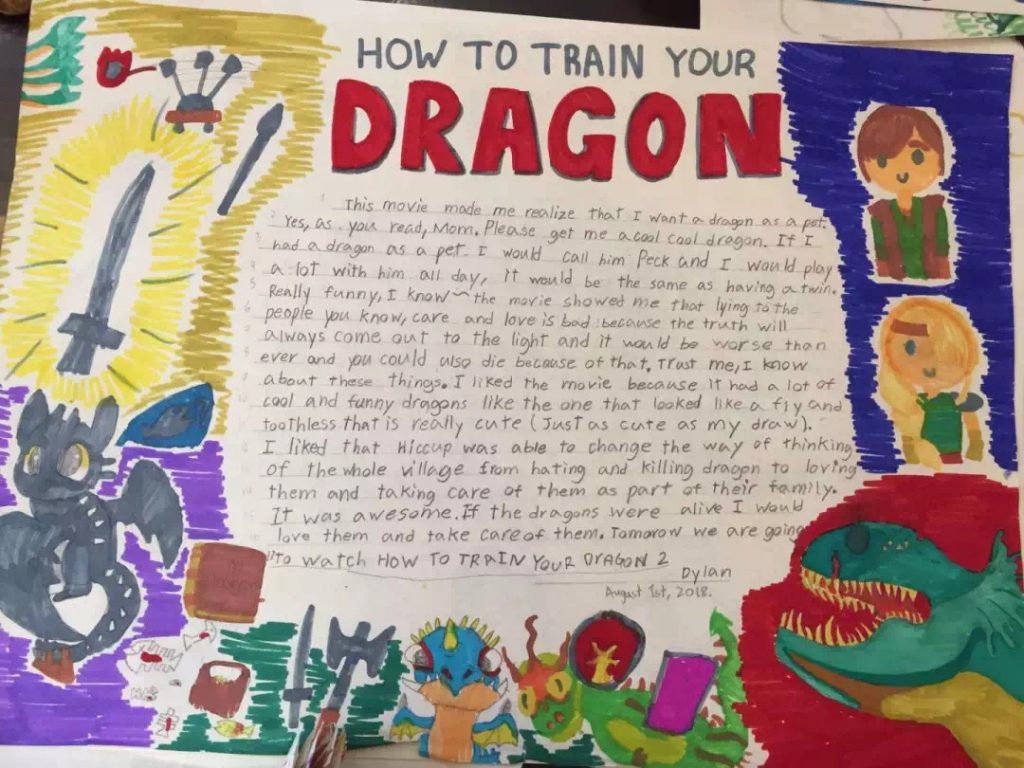 HOW TO TRAIN YOUR
DRAGON
This movie made me realize that I want a dragon as a pet.
Yes, as you read, Mom. Please get me a cool cool dragon. If I
had a dragon as a pet. I would call him Peck and I would play
a lot with him all day, It would be the same as having a twin.
Really funny, I know ~ the movie showed me that lying to the
people you know, care and love is bad because the truth will
always come out to the light and it would be worse than
ever and you could also die because of that. Trust me, I know
about these things. I liked the movie because it had a lot of
cool and funny dragons like the one that looked like a fly and
toothless that is really cute (Just as cute as my draw).
I liked that Hiccup was able to change the way of thinking
of the whole village from hating and killing dragon to loving
them and taking care of them as part of their family.
It was awesome. If the dragons were alive I would
love them and take care of them. Tomorow we are going
To watch HOW TO TRAIN YOUR DRAGON 2
Dylan
August 1st, 2018.